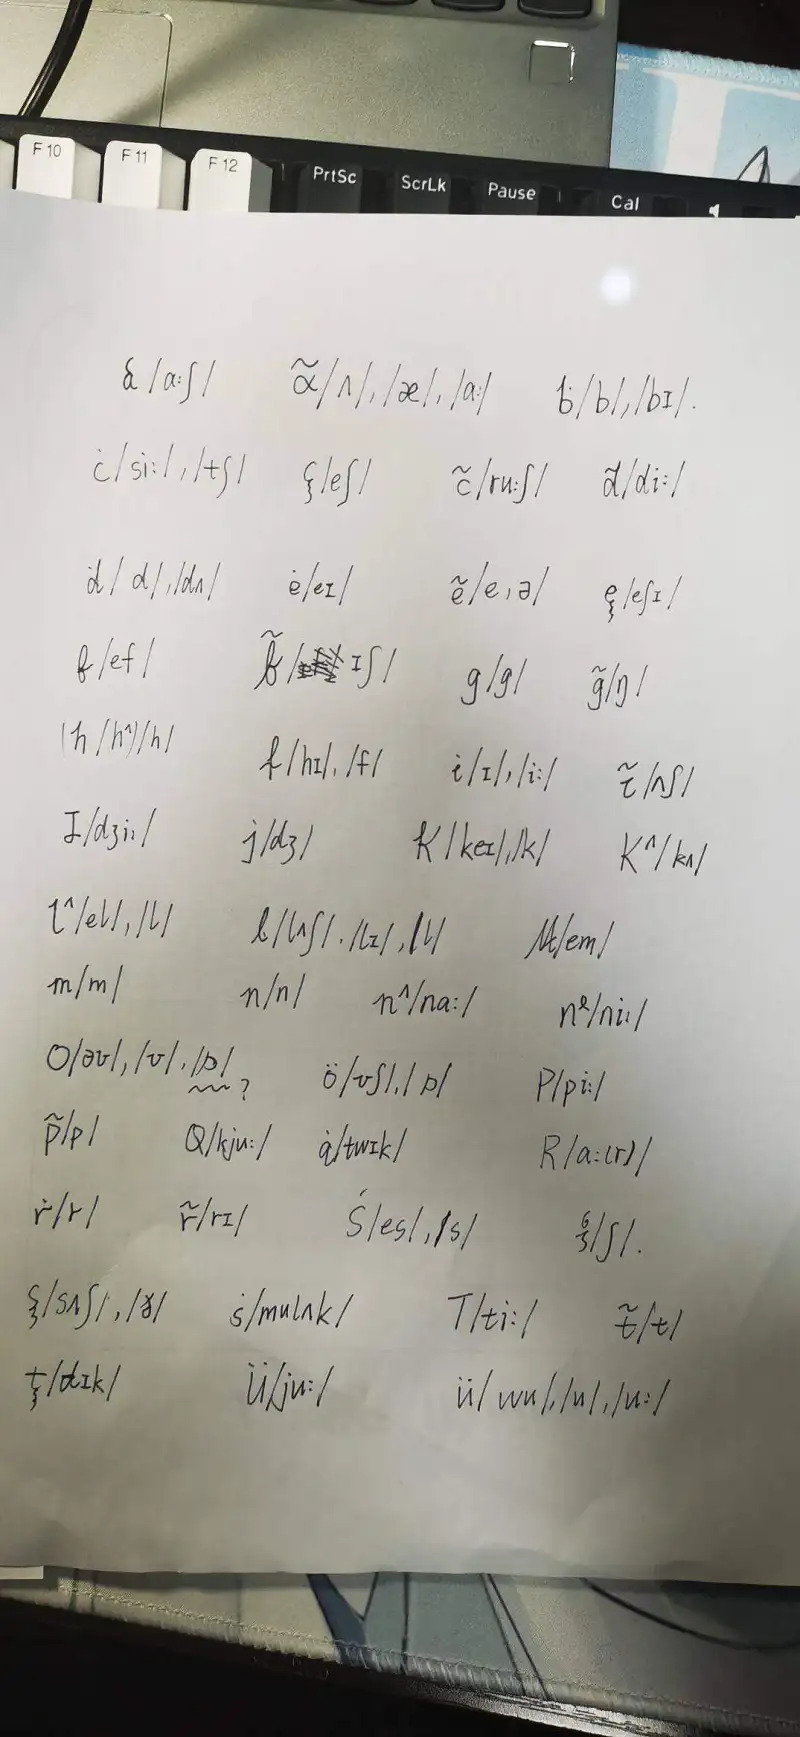 F10 F11 F12 PrtSc ScrLk Pause Cal
/a:ʃ/ α̃/ʌ/, /æ/, /a:/ ḃ/b/, /bɪ/.
ċ/si:/, /tʃ/ ç/eʃ/ c̃/ru:ʃ/ d̃/di:/
ḋ/d/, /dʌ/ ė/eɪ/ ẽ/e, ə/ ȩ/eʃɪ/
/ef/ /ɪʃ/ g/g/ g̃/ŋ/
(h/h^)/h/ f/hɪ/, /f/ i/ɪ/, /i:/ /ʌʃ/
J/dʒi:/ j/dʒ/ K/keɪ/, /k/ K^/kʌ/
l^/el/, /l/ ℓ/lʌʃ/, /lɪ/, /l/ M/em/
m/m/ n/n/ n^/na:/ nᵉ/ni:/
O/əʊ/, /ʊ/, /ɒ/ ? ö/ʊʃ/, /ɒ/ P/pi:/
p̃/p/ Q/kju:/ q̇/twɪk/ R/a:(r)/
ṙ/r/ r̃/rɪ/ Ś/es/, /s/ /ʃ/.
/sʌʃ/, /ɣ/ ṡ/mulʌk/ T/ti:/ t̃/t/
ţ/dɪk/ Ü/ju:/ ü/wu/, /u/, /u:/